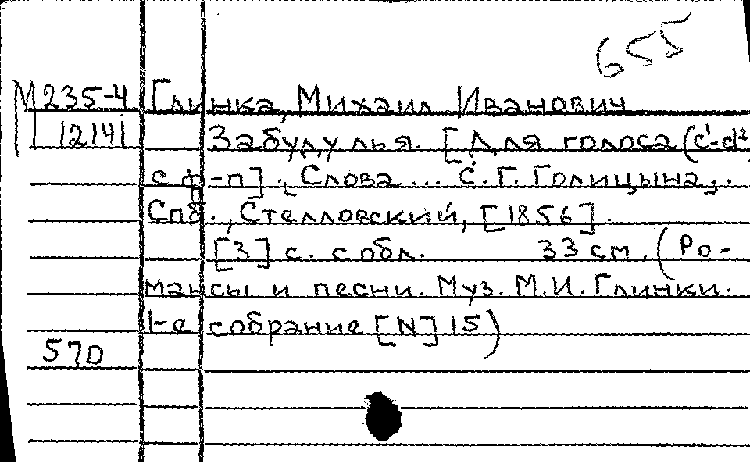 655
М235-4 Глинка, Михаил Иванович
12141 Забуду лья. [Для голоса (c¹-d²
с ф-п]. Слова ... С.Г. Голицына.
Спб., Стелловский, [1856].
[3] с. с обл. 33 см. (Ро-
мансы и песни. Муз. М.И. Глинки.
1-е собрание [N] 15)
570